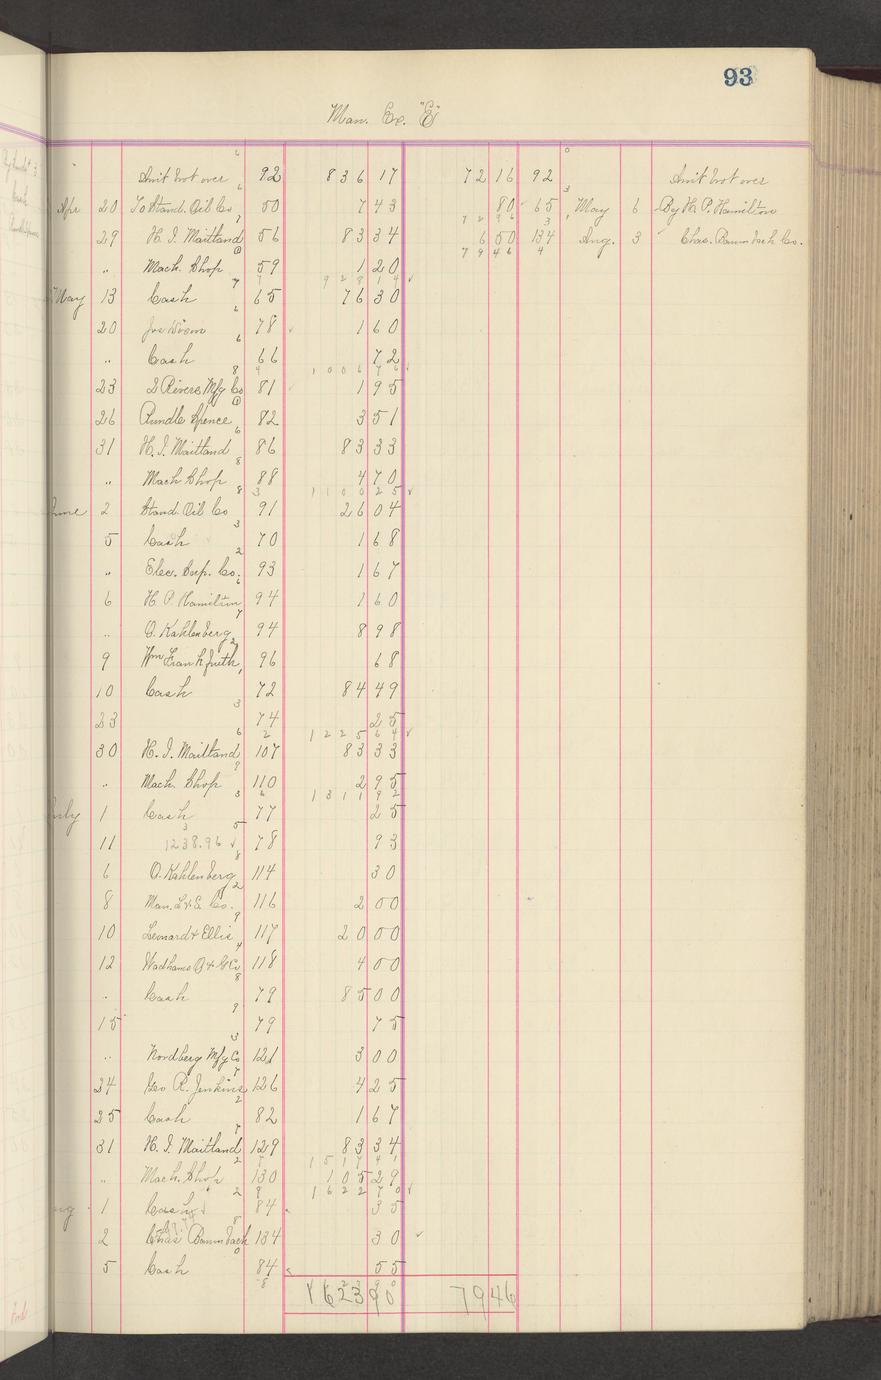 93
Man. Ex. "E"
Amt brot over 92 836 17 72 16 92 Amt brot over
Apr 20 To Stand. Oil Co 50 7 43 80 65 May 6 By H. P. Hamilton
72 96
29 H. I. Maitland 56 83 34 6 50 134 Aug. 3 Chas. Baumbach Co.
79 46
" Mach. Shop 59 1 20
928 14
May 13 Cash 65 76 30
20 78 1 60
" Cash 66 72
1006 76
23 2 Rivers Mfg Co 81 1 95
26 Rundle Spence 82 3 51
31 H. I. Maitland 86 83 33
" Mach Shop 88 4 70
1100 25
June 2 Stand. Oil Co 91 26 04
5 Cash 70 1 68
" Elec. Sup. Co. 93 1 67
6 H. P. Hamilton 94 1 60
" O. Kahlenberg 94 8 98
9 Wm Frankfurth 96 68
10 Cash 72 84 49
23 74 25
1225 64
30 H. I. Maitland 107 83 33
" Mach. Shop 110 2 95
1311 92
July 1 Cash 77 25
11 1238.96 78 93
6 O. Kahlenberg 114 30
8 Man. L & E Co. 116 2 00
10 Leonard & Ellis 117 20 00
12 Wadhams O & G Co 118 4 00
" Cash 79 85 00
15 79 75
" Nordberg Mfg Co 121 3 00
24 Geo R. Jenkins 126 4 25
25 Cash 82 1 67
31 H. I. Maitland 129 83 34
1517 41
" Mach. Shop 130 105 29
1622 70
Aug 1 Cash 84 35
2 Chas Baumbach 134 30
5 Cash 84 55
1623 90 79 46